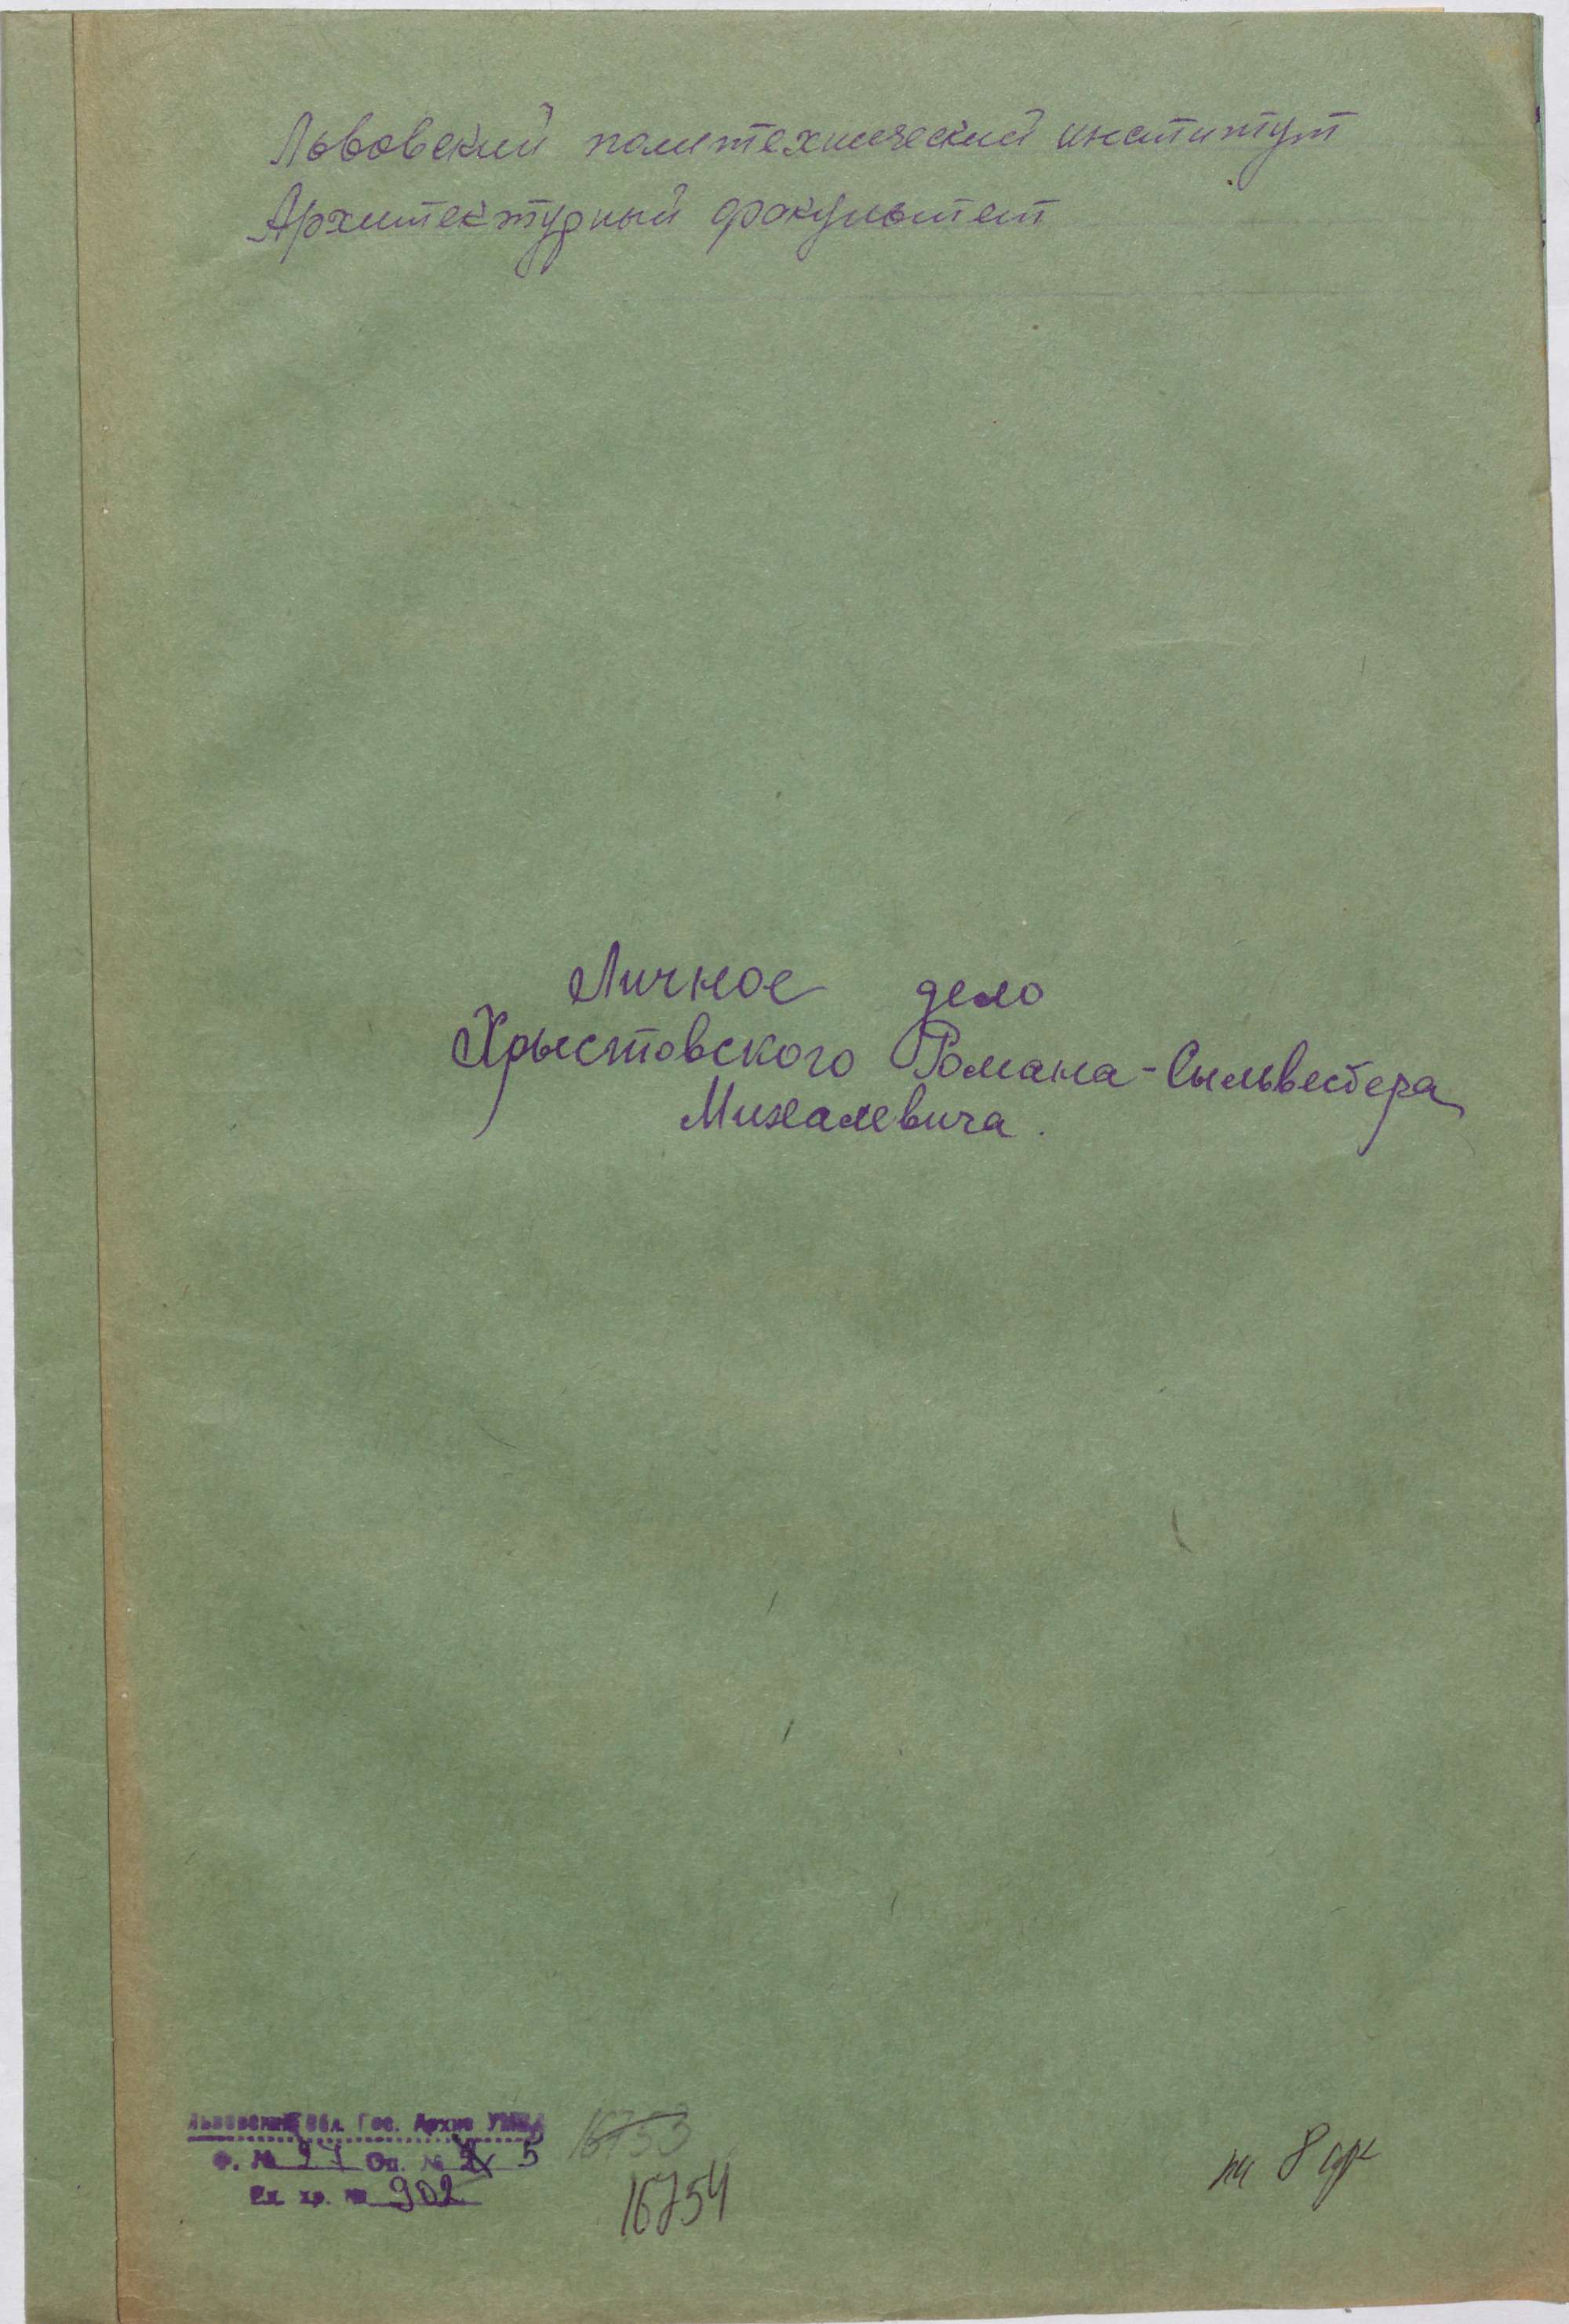 Львовский политехнический институт
Архитектурный факультет
Личное дело
Хрыстовского Романа-Сыльвестера
Михалевича.
Львовский Обл. Гос. Архив
Ф. № 27 Оп. № 5
Ед. хр. № 902
16753
16754
на 8 арк